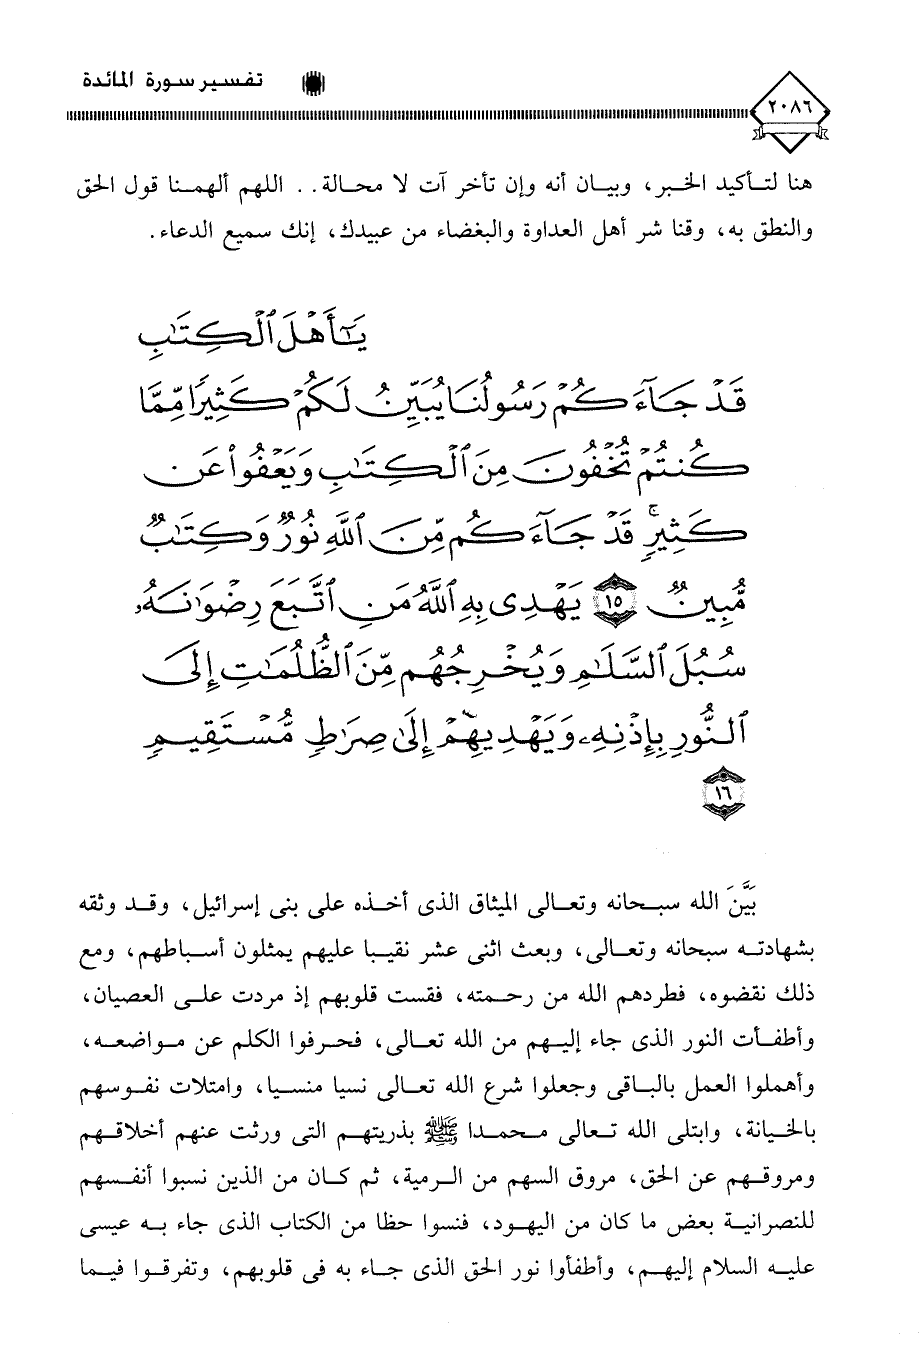 تفسير سورة المائدة
٢٠٨٦
هنا لتأكيد الخبر، وبيان أنه وإن تأخر آت لا محالة.. اللهم ألهمنا قول الحق
والنطق به، وقنا شر أهل العداوة والبغضاء من عبيدك، إنك سميع الدعاء.
يَـٰٓأَهْلَ ٱلْكِتَـٰبِ
قَدْ جَآءَكُمْ رَسُولُنَا يُبَيِّنُ لَكُمْ كَثِيرًا مِّمَّا
كُنتُمْ تُخْفُونَ مِنَ ٱلْكِتَـٰبِ وَيَعْفُوا۟ عَن
كَثِيرٍۚ قَدْ جَآءَكُم مِّنَ ٱللَّهِ نُورٌ وَكِتَـٰبٌ
مُّبِينٌ ١٥ يَهْدِى بِهِ ٱللَّهُ مَنِ ٱتَّبَعَ رِضْوَٰنَهُۥ
سُبُلَ ٱلسَّلَـٰمِ وَيُخْرِجُهُم مِّنَ ٱلظُّلُمَـٰتِ إِلَى
ٱلنُّورِ بِإِذْنِهِۦ وَيَهْدِيهِمْ إِلَىٰ صِرَٰطٍ مُّسْتَقِيمٍ
١٦
بَيَّنَ الله سبحانه وتعالى الميثاق الذى أخذه على بنى إسرائيل، وقد وثقه
بشهادته سبحانه وتعالى، وبعث اثنى عشر نقيبا عليهم يمثلون أسباطهم، ومع
ذلك نقضوه، فطردهم الله من رحمته، فقست قلوبهم إذ مردت على العصيان،
وأطفأت النور الذى جاء إليهم من الله تعالى، فحرفوا الكلم عن مواضعه،
وأهملوا العمل بالباقى وجعلوا شرع الله تعالى نسيا منسيا، وامتلات نفوسهم
بالخيانة، وابتلى الله تعالى محمدا ﷺ بذريتهم التى ورثت عنهم أخلاقهم
ومروقهم عن الحق، مروق السهم من الرمية، ثم كان من الذين نسبوا أنفسهم
للنصرانية بعض ما كان من اليهود، فنسوا حظا من الكتاب الذى جاء به عيسى
عليه السلام إليهم، وأطفأوا نور الحق الذى جاء به فى قلوبهم، وتفرقوا فيما